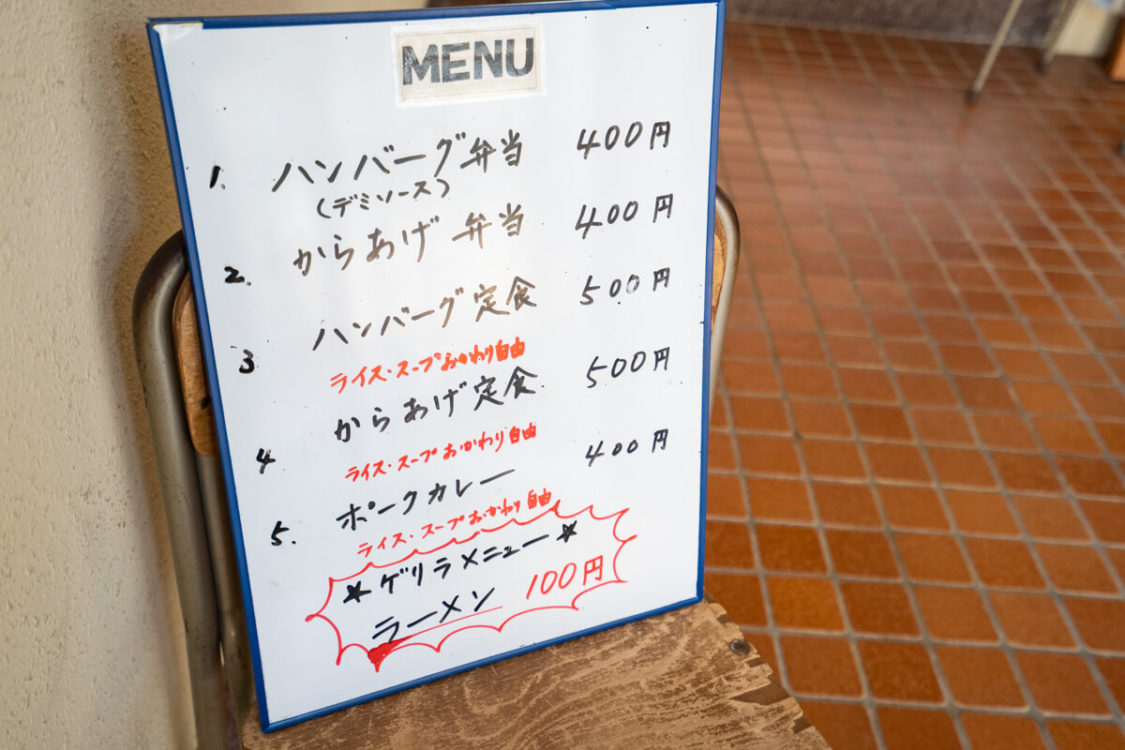 MENU
1. ハンバーグ弁当 400円
(デミソース)
2. からあげ弁当 400円
3 ハンバーグ定食 500円
ライス・スープおかわり自由
4 からあげ定食 500円
ライス・スープおかわり自由
5. ポークカレー 400円
ライス・スープおかわり自由
★ゲリラメニュー★
ラーメン 100円